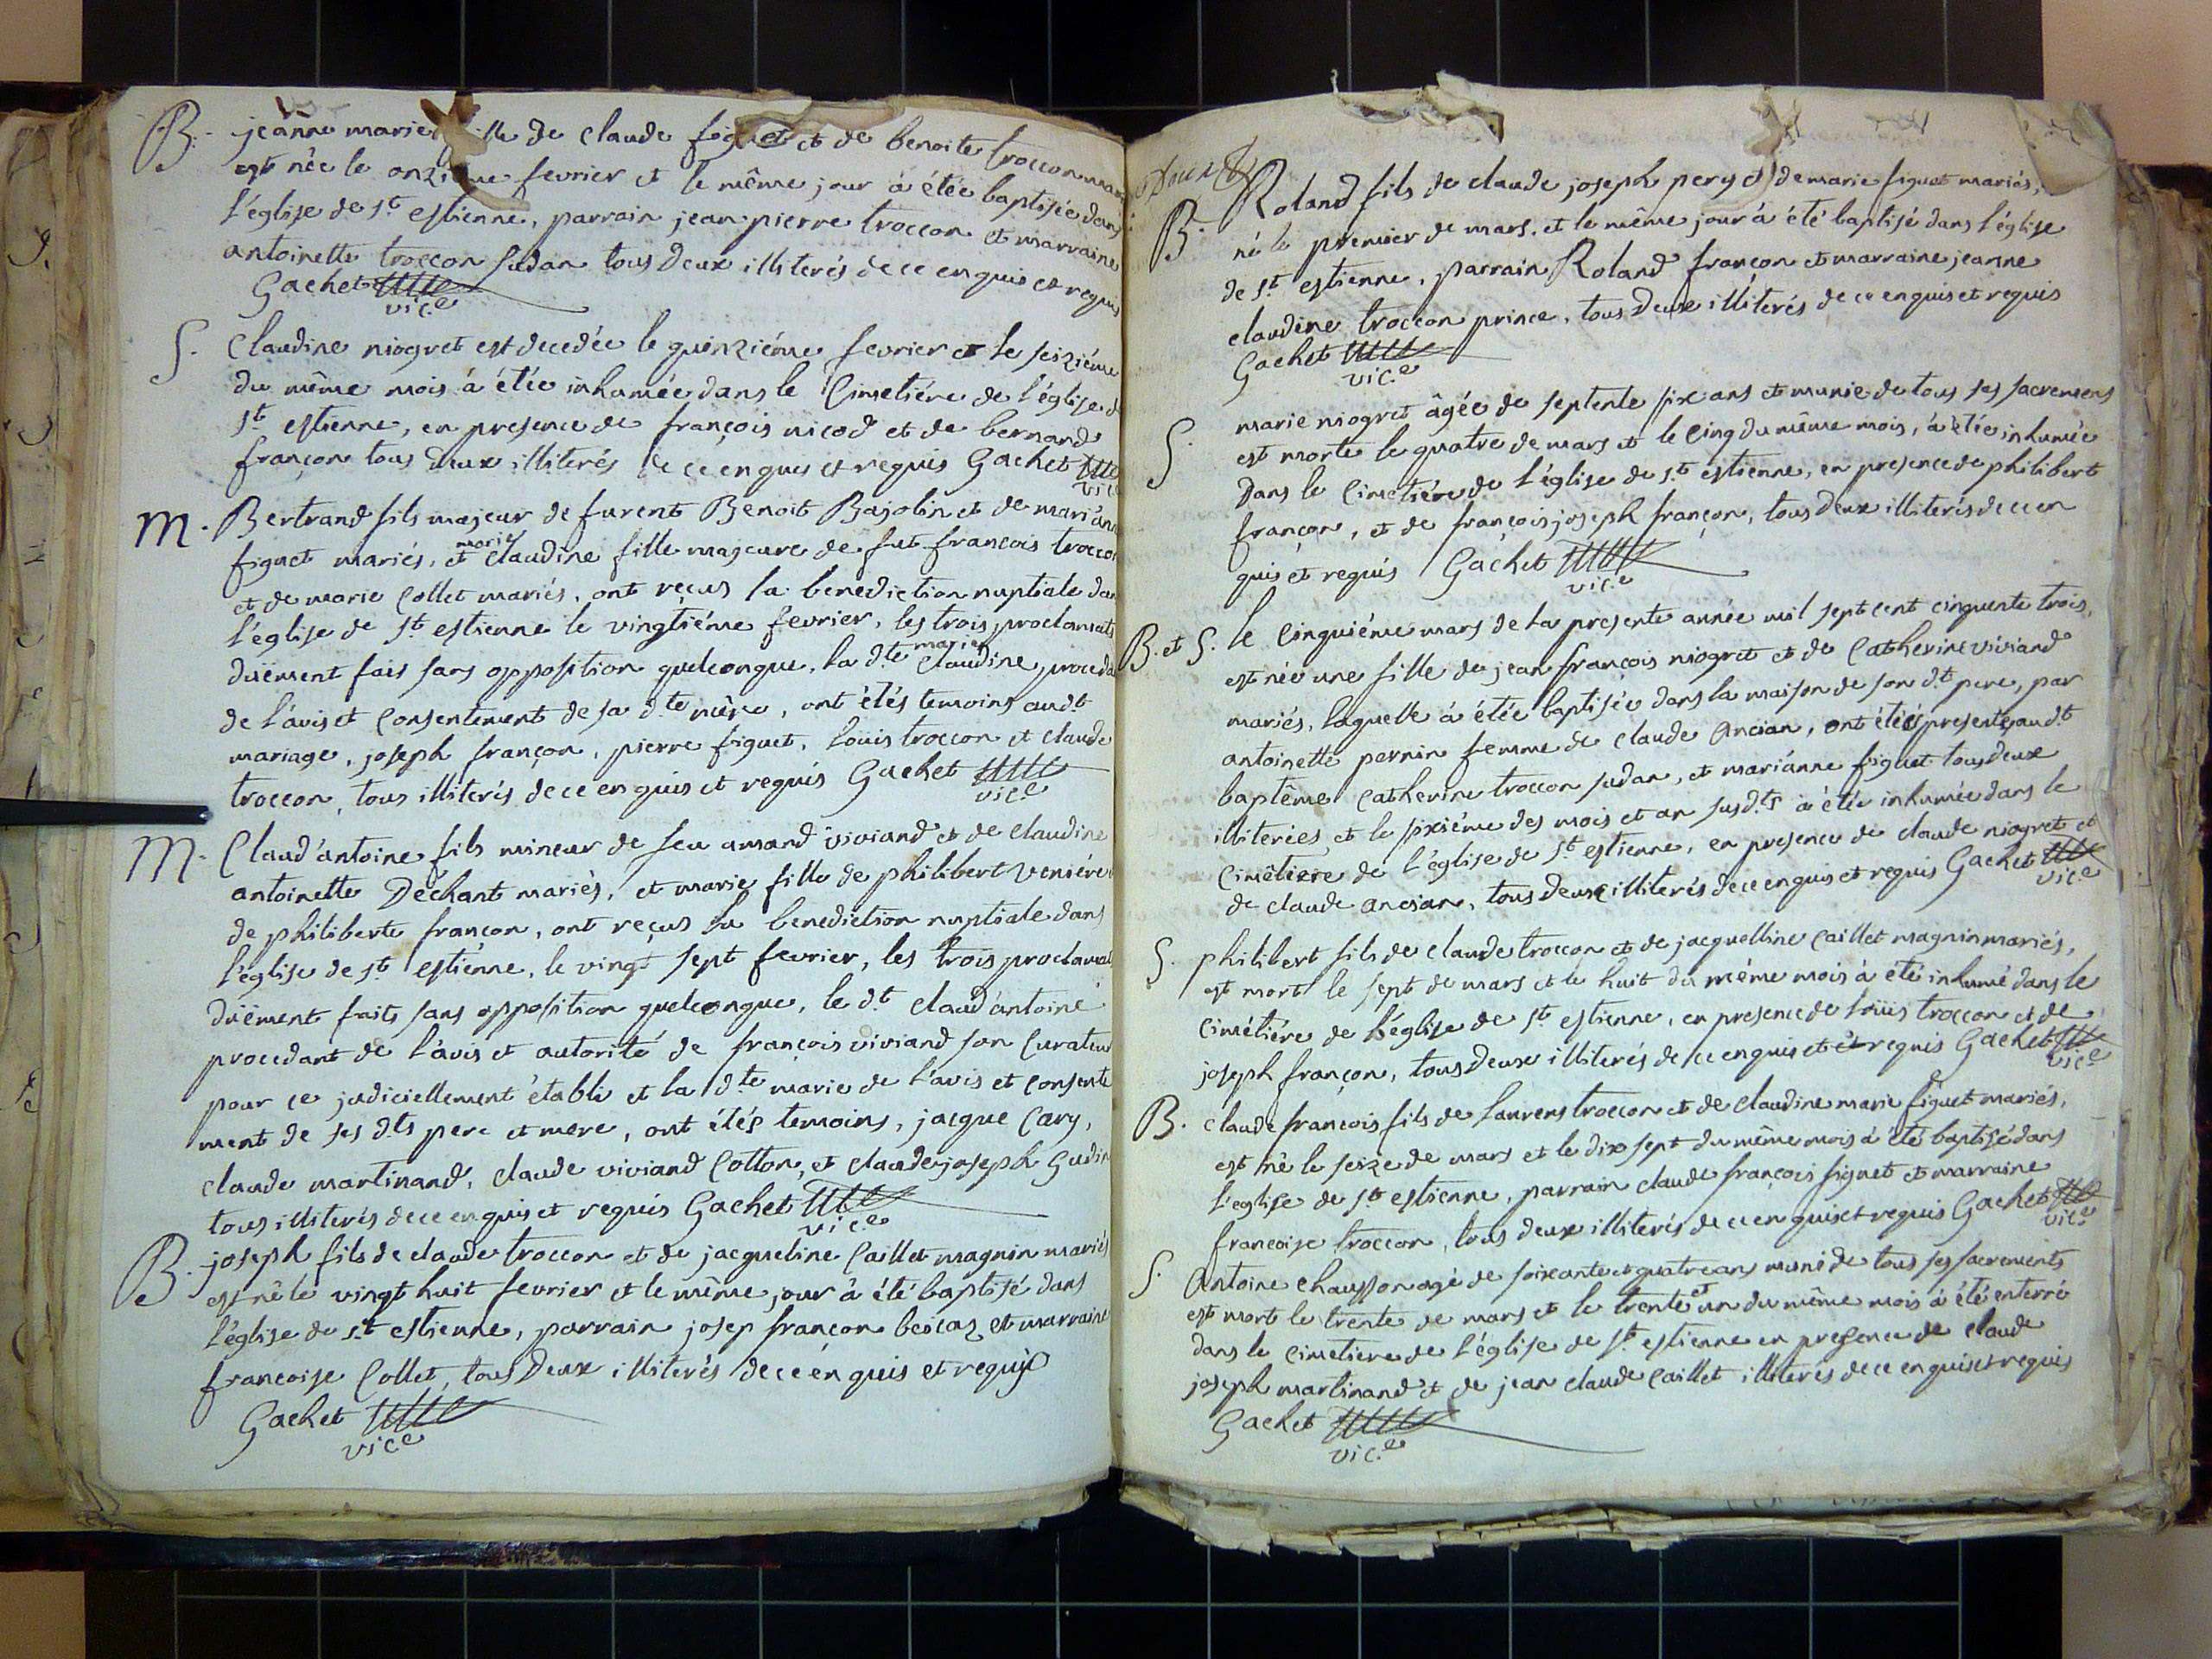 B. jeanne marie fille de claude figuet et de benoite troccon mari
est née le onzieme fevrier et le même jour à étée baptisée dans
l'église de st estienne, parrain jean pierre troccon et marraine
antoinette troccon sudan tous deux illiterés de ce enquis et requis
Gachet
vic.e
S. Claudine niogret est decedée le quinziéme fevrier et le seiziéme
du même mois à étée inhumée dans le Cimetiére de l'église d
st estienne, en presence de françois nicod et de bernard
françon tous deux illiterés de ce enquis et requis Gachet
vic
M. Bertrand fils majeur de furent Benoit Bajolin et de mari'an
figuet mariés, et marie claudine fille majeure de fut francois trocco
et de marie Collet mariés, ont reçus la benediction nuptiale dan
l'église de st estienne le vingtiéme fevrier, les trois proclamats
düement fais sans opposition quelconque, la d.te marie claudine, proceda
de l'avis et Consentement de sa d.te mére, ont étés temoins aud.t
mariage, joseph françon, pierre figuet, loüis troccon et claude
troccon, tous illiterés de ce enquis et requis Gachet
vic.e
M. Claud'antoine fils mineur de feu amand viviand et de claudine
antoinette Déchant mariés, et marie fille de philibert veniére
de philiberte françon, ont reçus la benediction nuptiale dans
l'église de st estienne, le vingt sept fevrier, les trois proclamat
düement faits sans opposition quelconque, le d.t claud'antoine
procedant de l'avis et autorité de françois viviand son Curateur
pour ce judiciellement établi et la d.te marie de l'avis et Consente
ment de ses d.ts pere et mere, ont étés temoins, jacque Cary,
claude martinand, claude viviand Cotton, et claude joseph Gudin
tous illiterés de ce enquis et requis Gachet
vic.e
B. joseph fils de claude troccon et de jacqueline Caillet magnin mariés
est né le vingt huit fevrier et le même jour à été baptisé dans
l'église de st estienne, parrain josep françon et marraine
francoise Collet, tous deux illiterés de ce enquis et requis
Gachet
vic.e
B. Roland fils de claude joseph pery et de marie figuet mariés,
né le premier de mars, et le même jour à été baptisé dans l'église
de st estienne, parrain Roland françon et marraine jeanne
claudine troccon prince, tous deux illiterés de ce enquis et requis
Gachet
vic.e
S. marie niogret âgée de septente six ans et munie de tous ses sacremens
est morte le quatre de mars et le Cinq du même mois, à étée inhumée
dans le Cimetiére de l'église de st estienne, en presence de philibert
françon, et de françois joseph françon, tous deux illiterés de ce en
quis et requis Gachet
vic.e
B. et S. le Cinquiéme mars de la presente année mil sept cent cinquente trois,
est née une fille de jean françois niogret et de Catherine viviand
mariés, laquelle à étée baptisée dans la maison de son d.t pere, par
antoinette pernin femme de claude Ancian, ont étées presentes aud.t
baptême Catherine troccon sudan, et mariánne figuet tous deux
illiterées, et le sixiéme des mois et an susd.ts à étée inhumée dans le
Cimétiére de l'église de st estienne, en presence de claude niogret et
de claude ancian, tous deux illiterés de ce enquis et requis Gachet
vic.e
S. philibert fils de claude troccon et de jacquelline Caillet magnin mariés,
est mort le sept de mars et le huit du même mois à été inhumé dans le
Cimétiére de l'église de st estienne, en presence de loüis troccon et de
joseph françon, tous deux illiterés de ce enquis et et requis Gachet
vic.e
B. claude francois fils de laurens troccon et de claudine marie figuet mariés,
est né le seize de mars et le dix sept du même mois à été baptisé dans
l'eglise de st estienne, parrain claude françois figuet et marraine
francoise troccon, tous deux illiterés de ce enquis et requis Gachet
vic.e
S. Antoine chausson agé de soixante et quatre ans muni de tous ses sacrements
est mort le trente de mars et le trente et un du même mois à été enterré
dans le cimetiere de l'église de st estienne en presence de claude
joseph martinand et de jean claude Caillet illiterés de ce enquis et requis
Gachet
vic.e